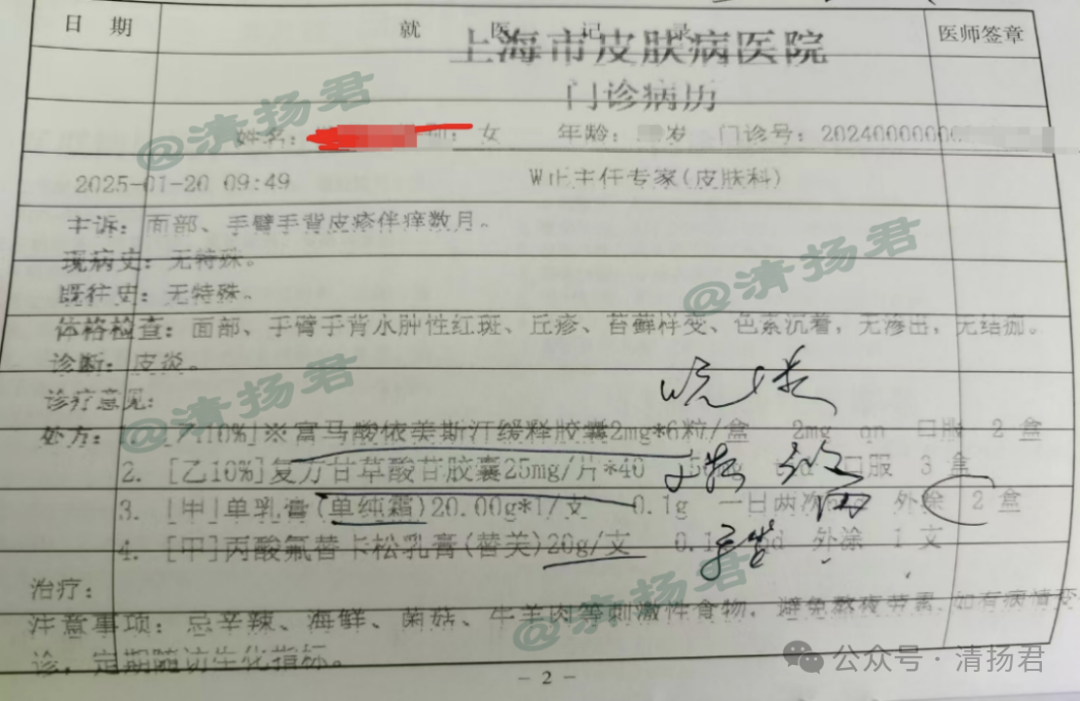 日 期 就 医 记 录 医师签章
上海市皮肤病医院
门诊病历
姓名: 性别: 女 年龄: 岁 门诊号: 20240000000
2025-01-20 09:49 W正主任专家(皮肤科)
主诉: 面部、手臂手背皮疹伴痒数月。
现病史: 无特殊。
既往史: 无特殊。
体格检查: 面部、手臂手背水肿性红斑、丘疹、苔藓样变、色素沉着, 无渗出, 无结痂。
诊断: 皮炎。
诊疗意见:
处方: 1. [乙10%]※富马酸依美斯汀缓释胶囊2mg*6粒/盒 2mg qn 口服 2 盒
2. [乙10%]复方甘草酸苷胶囊25mg/片*40 口服 3 盒
3. [甲]单乳膏(单纯霜)20.00g*1/支 0.1g 一日两次 外涂 2 盒
4. [甲]丙酸氟替卡松乳膏(替关)20g/支 外涂 1 支
治疗:
注意事项: 忌辛辣、海鲜、菌菇、牛羊肉等刺激性食物, 避免熬夜劳累, 如有病情变
诊, 定期随访生化指标。
- 2 -
@清扬君
@清扬君
@清扬君
@清扬君
公众号·清扬君